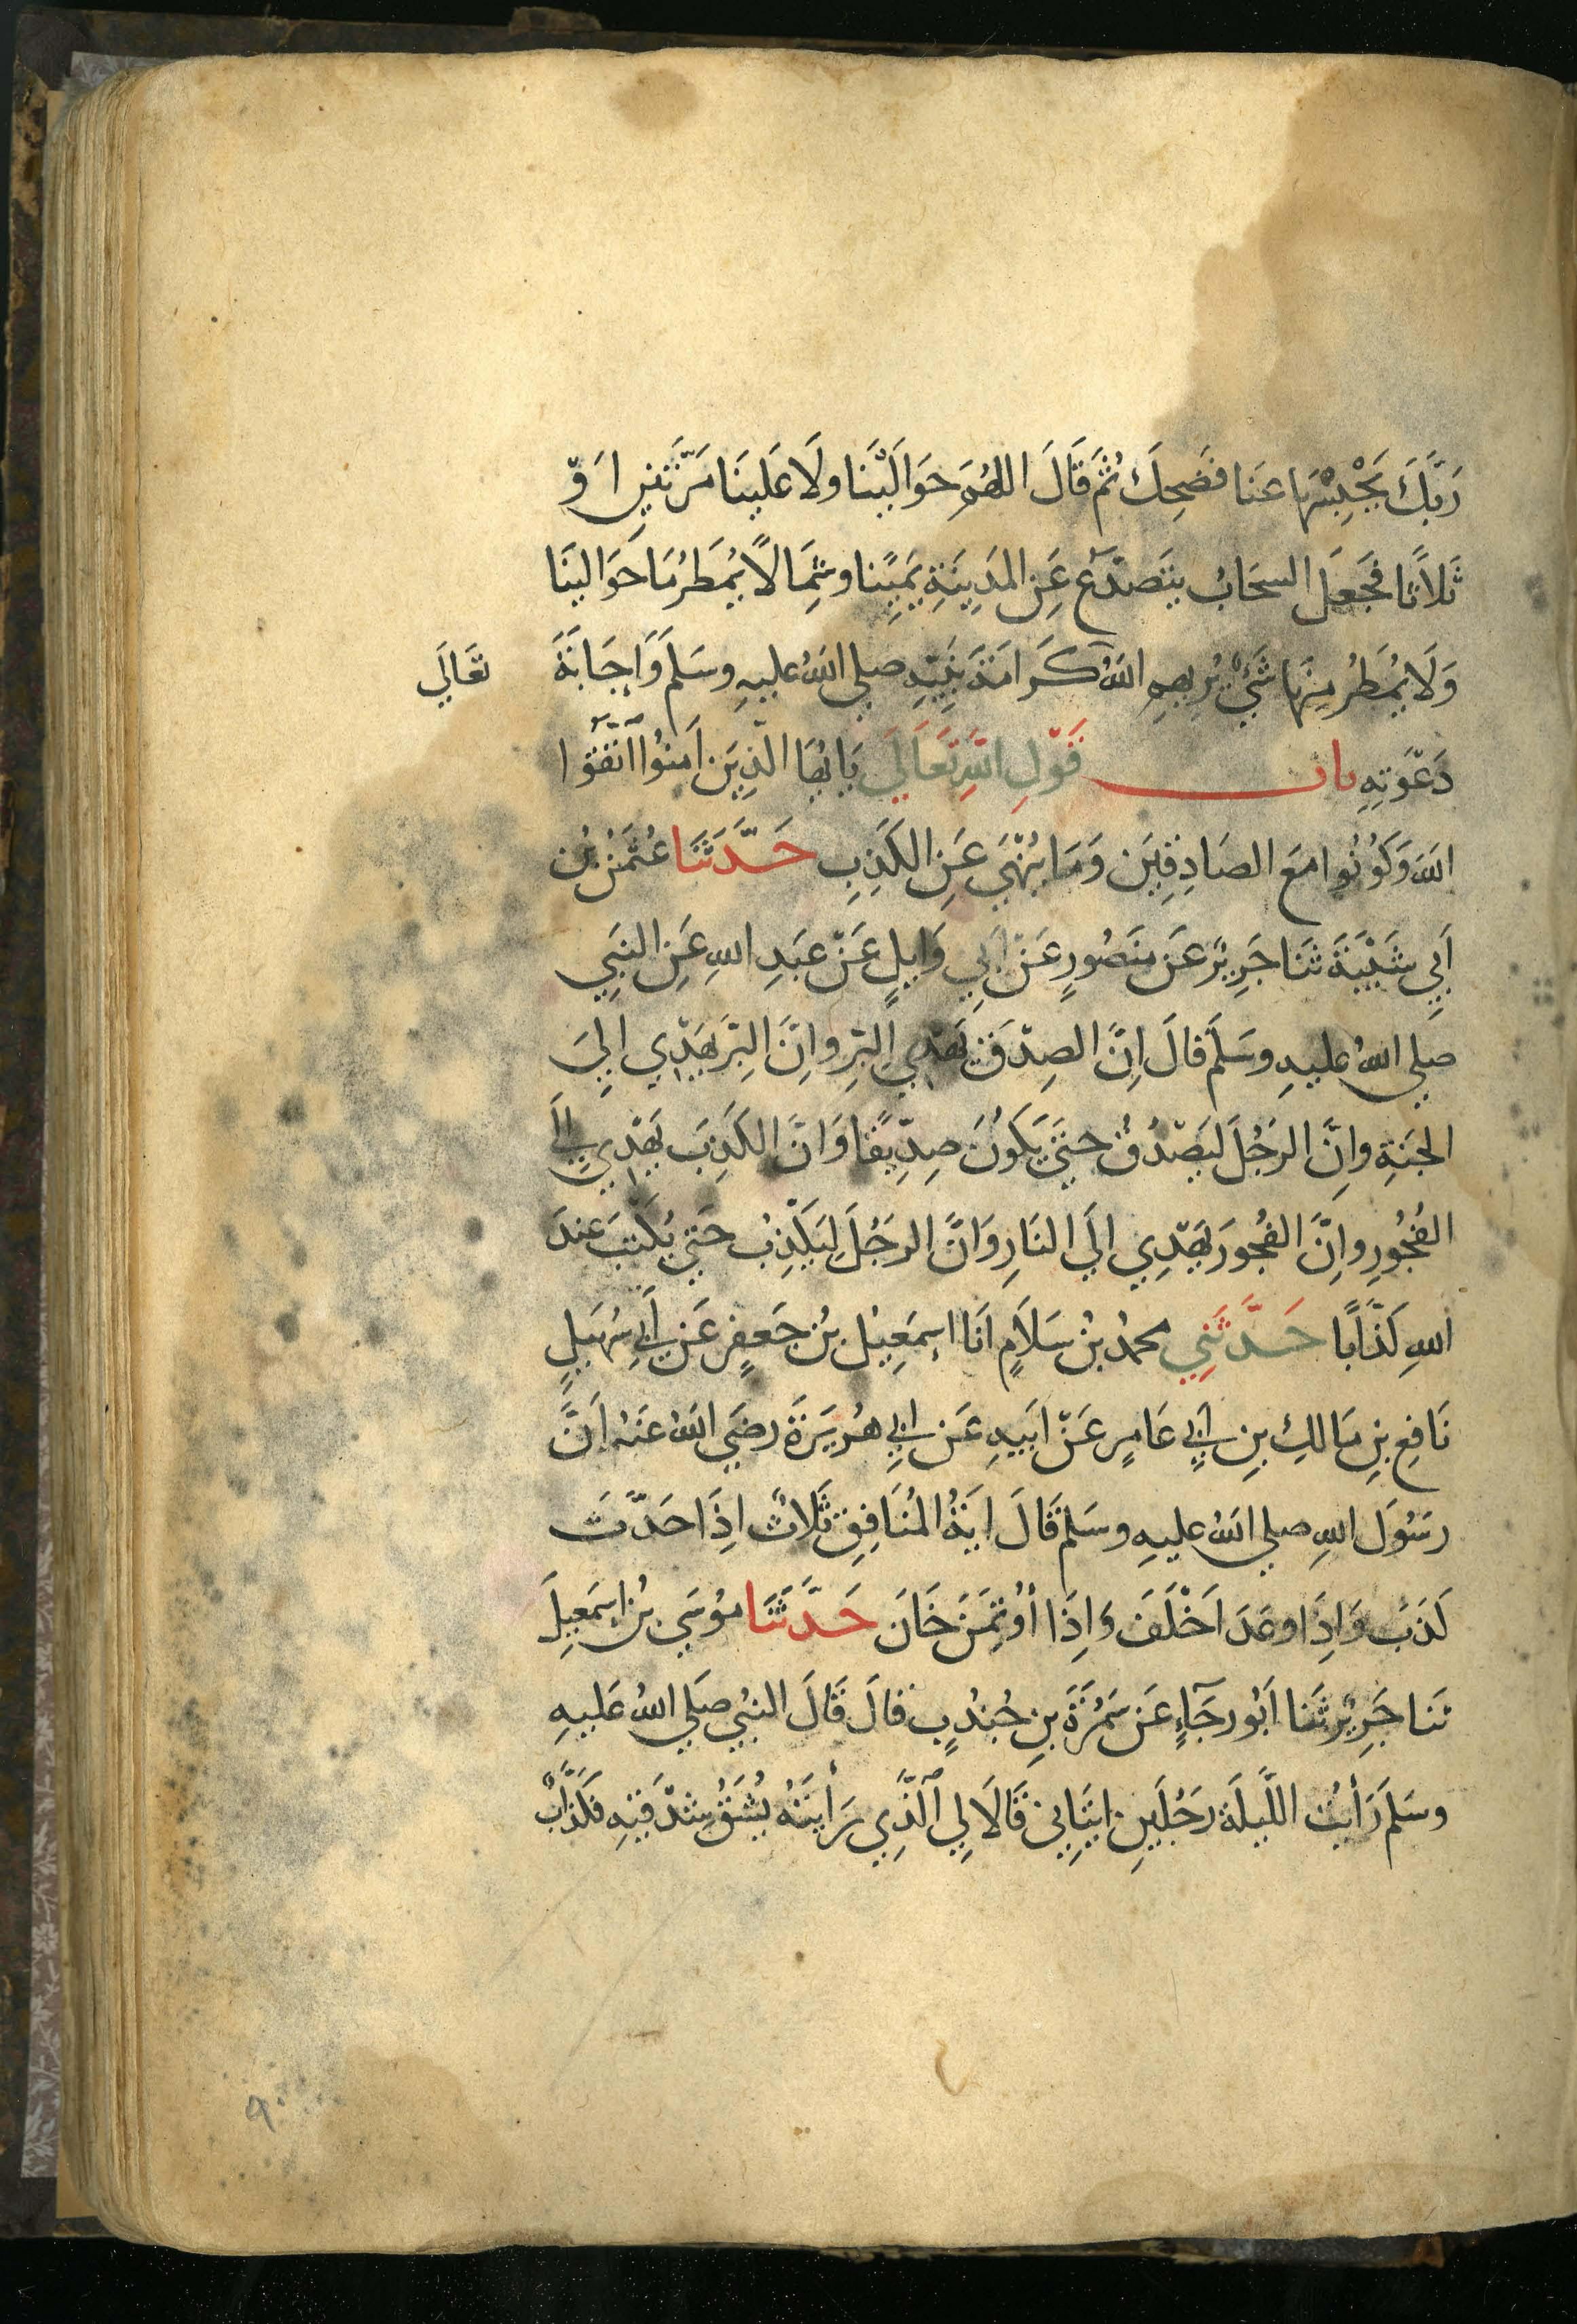 رَبَّكَ يَحْبِسْهَا عَنَا فَضَحِكَ ثُمَّ قَالَ اللهُمَّ حَوَالَيْنَا ولَا عَلَينَا مَرَّتَينِ اَوْ
ثَلَاثًا فَجَعَلَ السحَابُ يتَصَدَّعُ عَنِ المَدِينَةِ يَمِينًا وشِمَالًا يُمْطَرُ مَا حَوَالينَا
وَلَا يُمْطَرُ مِنْهَا شَيْءٌ يُرِيهِمِ اللهُ كَرَامَةَ نَبِيِّهِ صلي اللهُ عليهِ وسَلمَ وَاِجَابَةَ
تعَالَي
دَعْوَتِهِ باب قَوْلِ اللهِ تَعَالَى يَا اَيُّهَا الَّذِينَ اَمنُوا اتَّقُوا
اللهَ وَكُونُوا مَعَ الصَادِقِينَ وَمَا يُنْهَي عَنِ الكَذِبِ حَدَّثَنَا عُثمَنُ بْنُ
اَبِي شَيْبَةَ ثنَا جَرِيْرٌ عَنْ مَنصُورٍ عَنْ اَبِي وَايِلٍ عَنْ عَبدِ اللهِ عَنِ النبَيِ
صلي اللهُ عليهِ وسَلَّمَ قالَ اِنَّ الصِدْقَ يَهْدِي اِلي البِّرِ واِنَّ البِّرَ يَهْدِي اِليَ
الجَنةِ واِنَّ الرَجُلَ لَيَصْدُقُ حتَي يَكُونَ صِدِّيقًا وَاِنَّ الكَذِبَ يَهْدِي اِلَي
الفُجُورِ واِنَّ الفُجُورَ يَهْدِي اِلَي النَارِ وَاِنَّ الرَجُلَ لَيَكْذِبُ حَتي يُكتَبَ عِندَ
اللهِ كَذَّابًا حَدَّثَنِي محمدُ بنُ سَلَامٍ اَنَا اِسمَعِيلُ بنُ جَعفَرٍ عَن اَبِي سُهَيلٍ
نَافِعِ بنِ مَالكِ بنِ اَبِي عَامِرٍ عَنْ اَبِيهِ عَن اَبِي هُرَيرَةَ رضَي اللهُ عَنهُ اَنَّ
رسُولَ اللهِ صلي اللهُ عليهِ وسَلمَ قالَ ايَةُ المُنَافِقِ ثَلَاثٌ اِذَا حَدَّثَ
كَذَبَ وَاِذَا وعَدَ اَخْلَفَ وَاِذَا اُوْتُمِنَ خَانَ حَدَّثَنَا مُوسَي بنُ اِسمَعِيلَ
ثنَا جَرِيْرٌ ثَنا اَبُو رجَآءٍ عَن سَمُرَةَ بنِ جُندُبٍ قالَ قَالَ النبيُ صَلي اللهُ عَليهِ
وسَلمَ رَاَيْتُ اللَّيلَةَ رَجُلَينِ اَتَيَانِي قَالَا لِي اَلَّذِي رَاَيتَهُ يُشَقُ شِدْقُهُ فَكَذَّابٌ